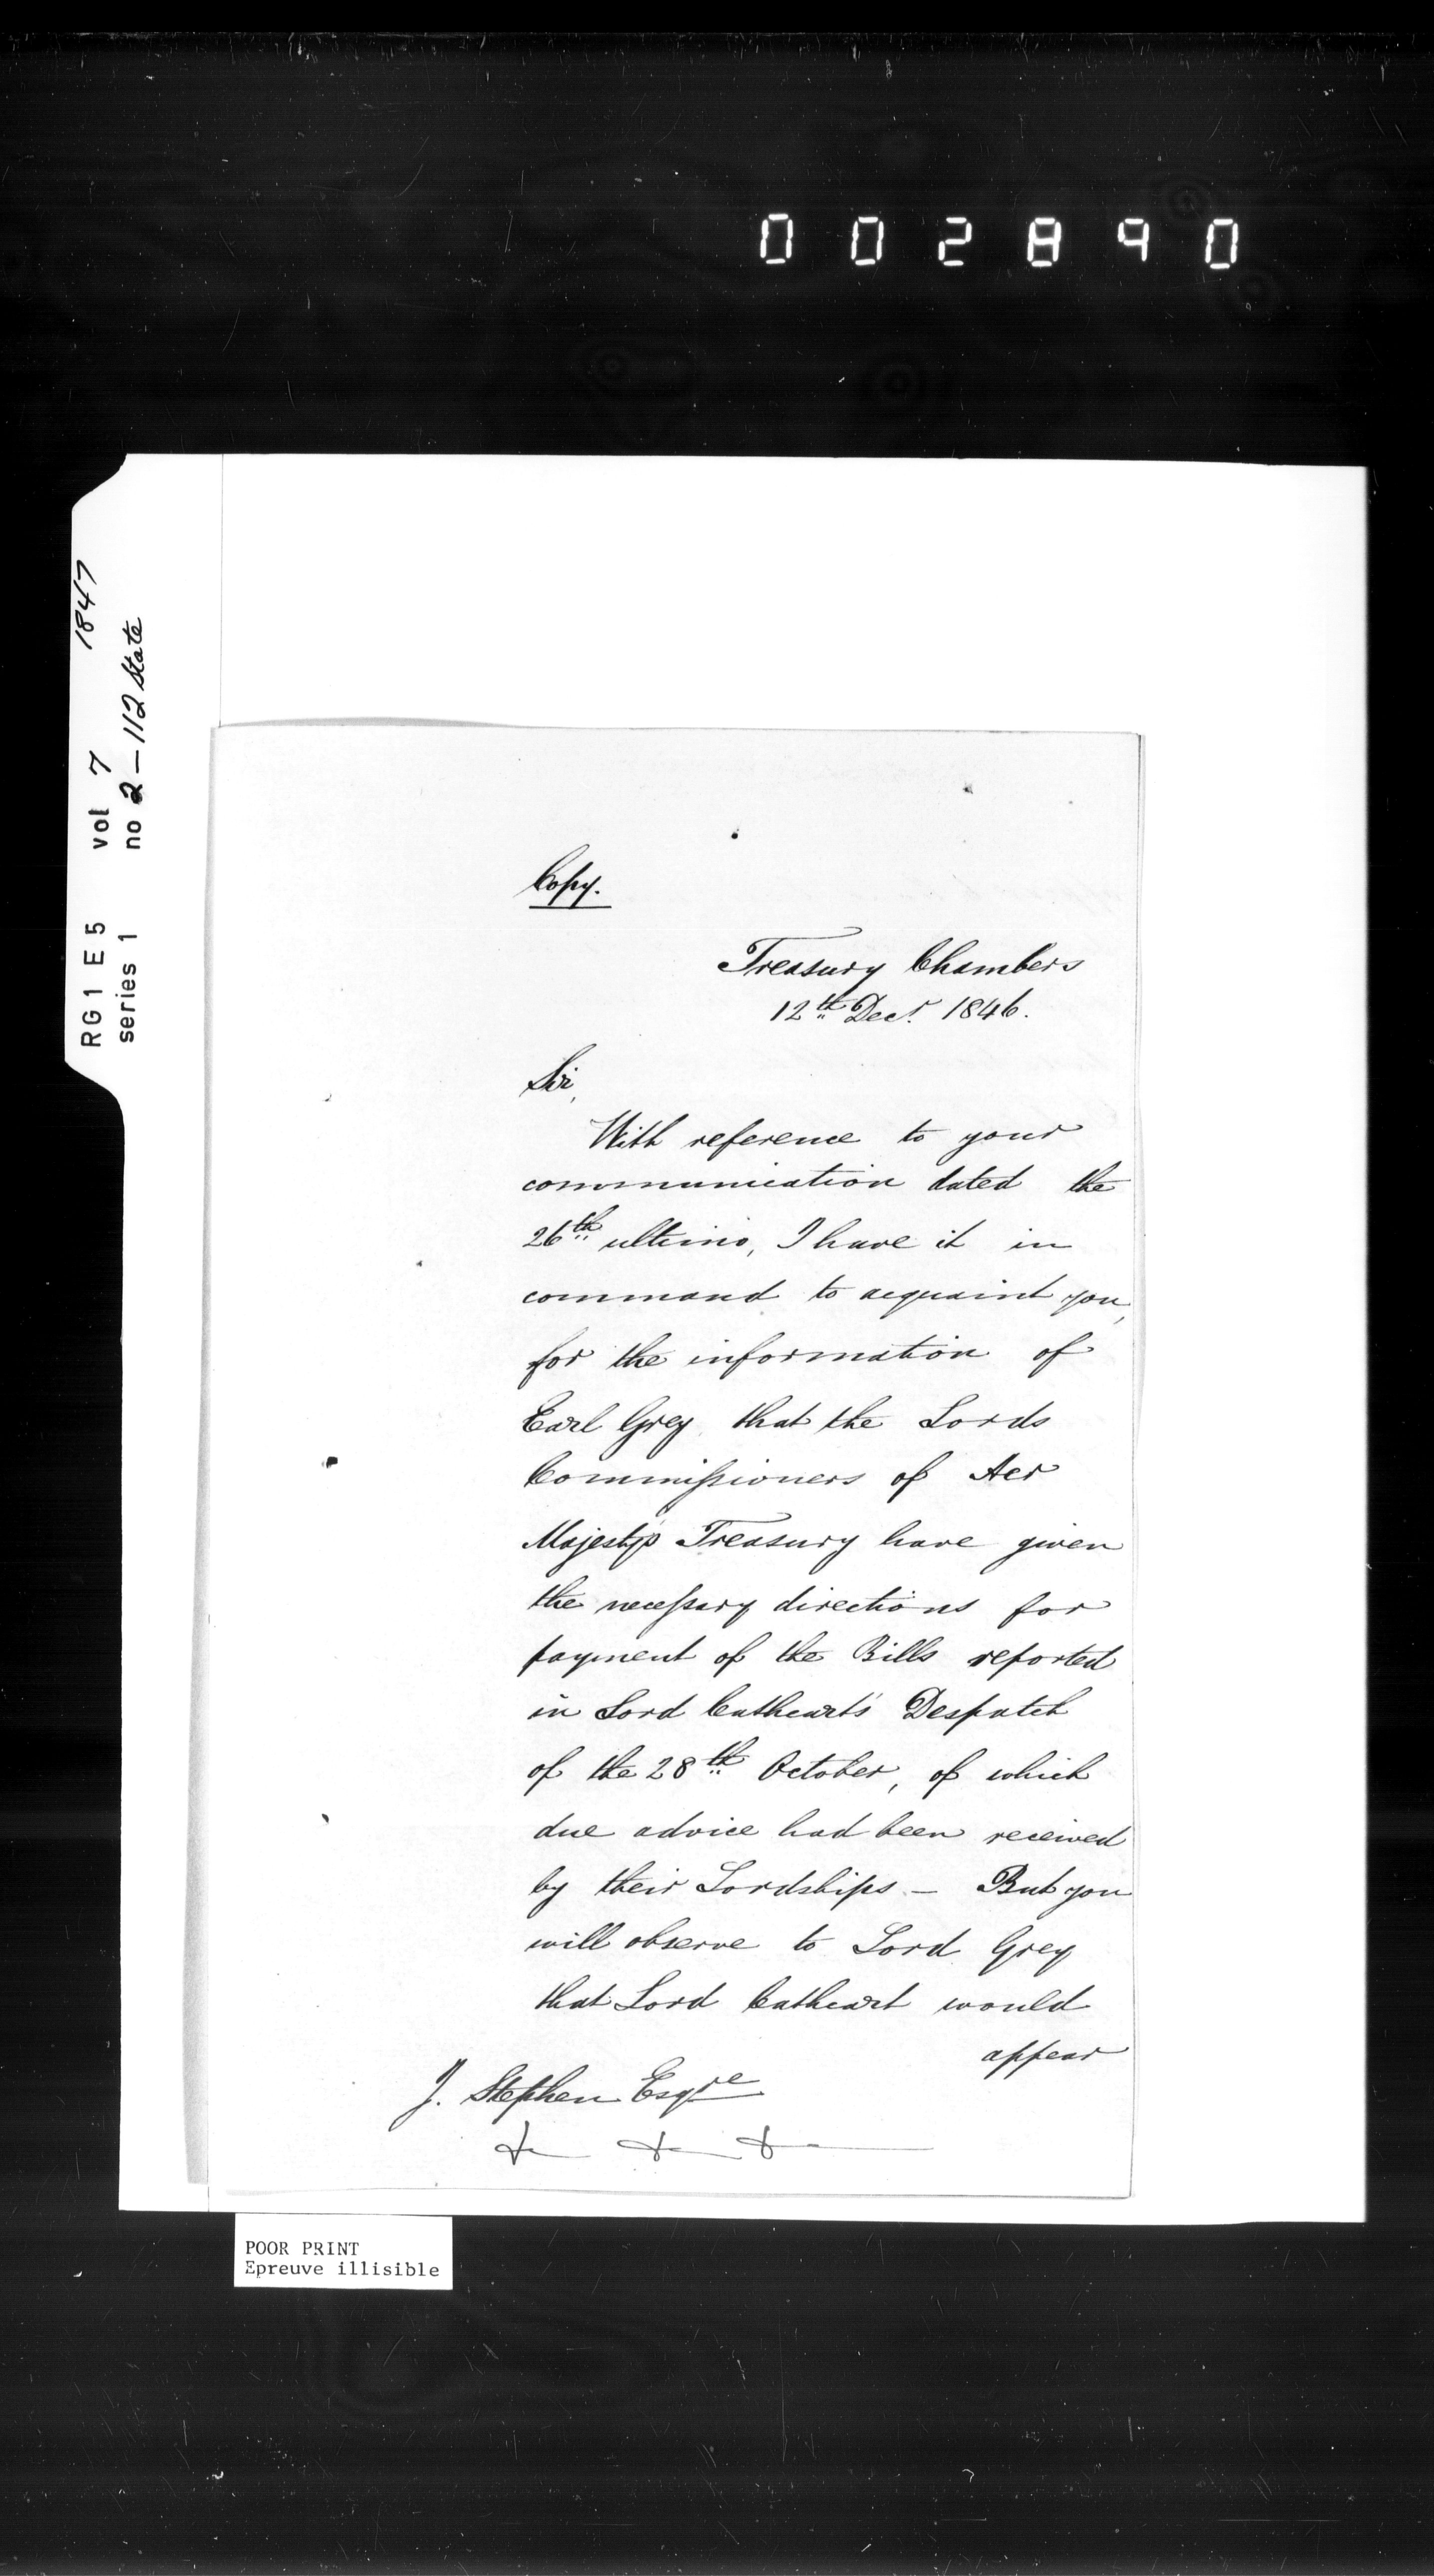 002890
RG1 E5 vol 7 1847
series 1 no 2-112 State
Copy.
Treasury Chambers
12th Decr. 1846.
Sir,
With reference to your
communication dated the
26th ultimo, I have it in
command to acquaint you,
for the information of
Earl Grey that the Lords
Commissioners of Her
Majesty's Treasury have given
the necessary directions for
payment of the Bills reported
in Lord Cathcart's Despatch
of the 28th October, of which
due advice had been received
by their Lordships - But you
will observe to Lord Grey
that Lord Cathcart would
appear
J. Stephen Esqre
POOR PRINT
Epreuve illisible